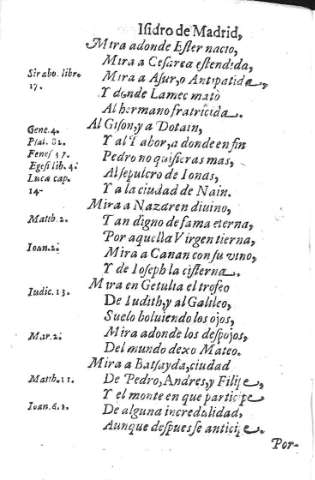 Isidro de Madrid,
Mira adonde Ester nacio,
Mira a Cesarea estendida,
Strabo. libr.
17.
Mira a Asur, o Antipatida,
Y donde Lamec matò
Al hermano fratricida.
Gene. 4.
Al Gison, y a Dotain,
Psal. 82.
Y al Tabor, a donde en fin
Pedro no quisieras mas,
Egesi lib. 4.
Al sepulcro de Ionas,
Luca cap.
14.
Y a la ciudad de Nain.
Mira a Nazaren diuino,
Matth. 2.
Tan digno de fama eterna,
Por aquella Virgen tierna,
Ioan. 2.
Mira a Canan con su vino,
Y de Ioseph la cisterna.
Mira en Getulia el trofeo
Iudic. 13.
De Iudith, y al Galileo,
Suelo boluiendo los ojos,
Mar. 2.
Mira adonde los despojos,
Del mundo dexo Mateo.
Mira a Batsayda, ciudad
Matth. 11.
De Pedro, Andres, y Filipe,
Y el monte en que participe
Ioan. 6. 1.
De alguna incredulidad,
Aunque despues se anticipe
Por-